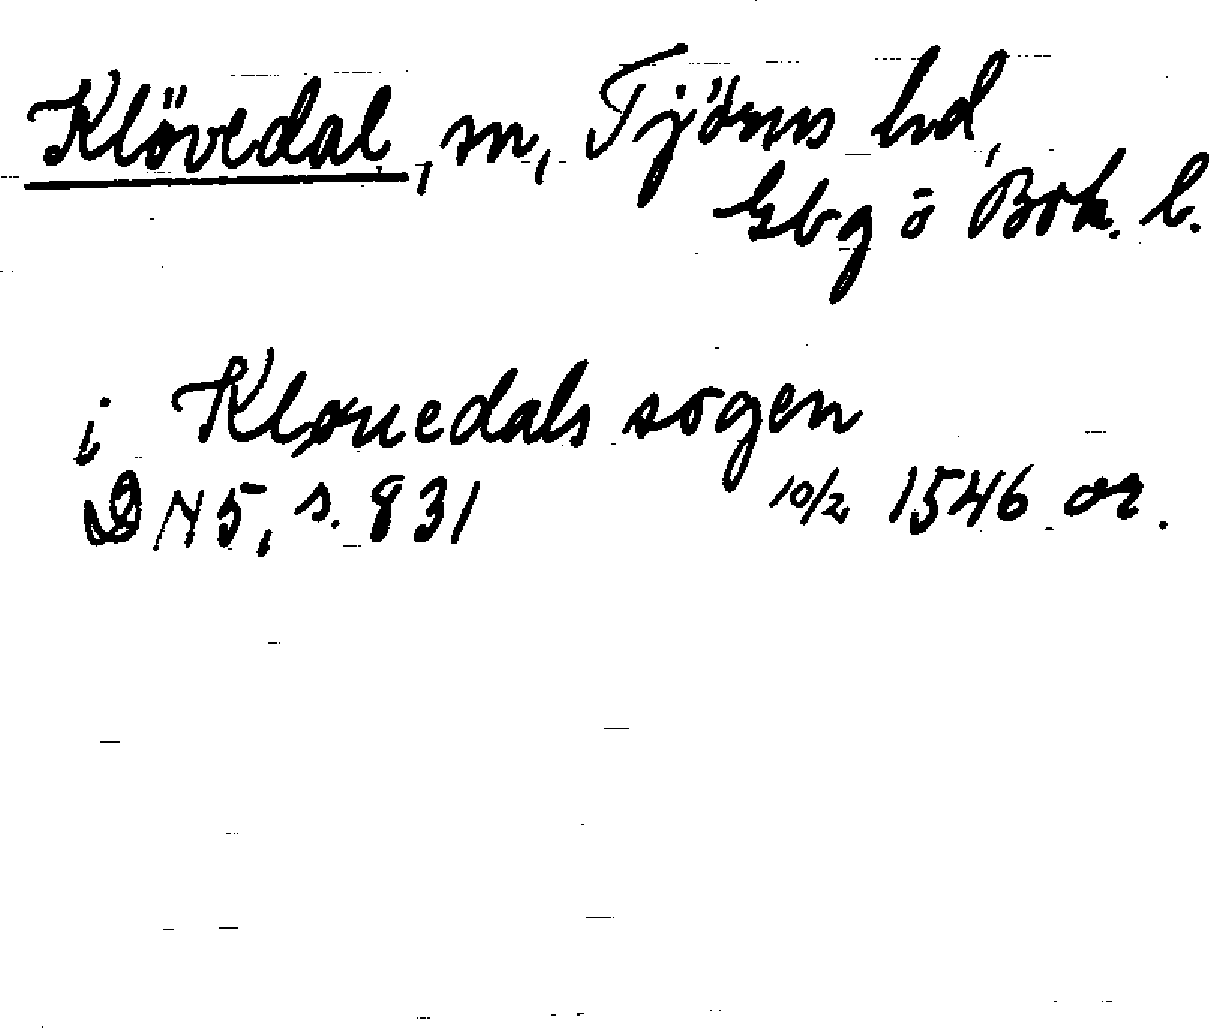 Klövedal, sn, Tjörns hd,
Gbg ō Boh. l.
i Kløuedals sogen
DN 5, s. 831 10/2 1546 or.